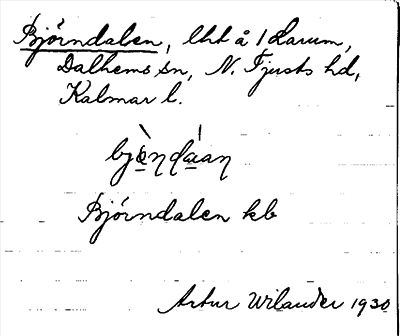 Björndalen, lht å 1 Larum,
Dalhems sn, N. Tjusts hd,
Kalmar l.
Björndalen kb
Artur Wilander 1930